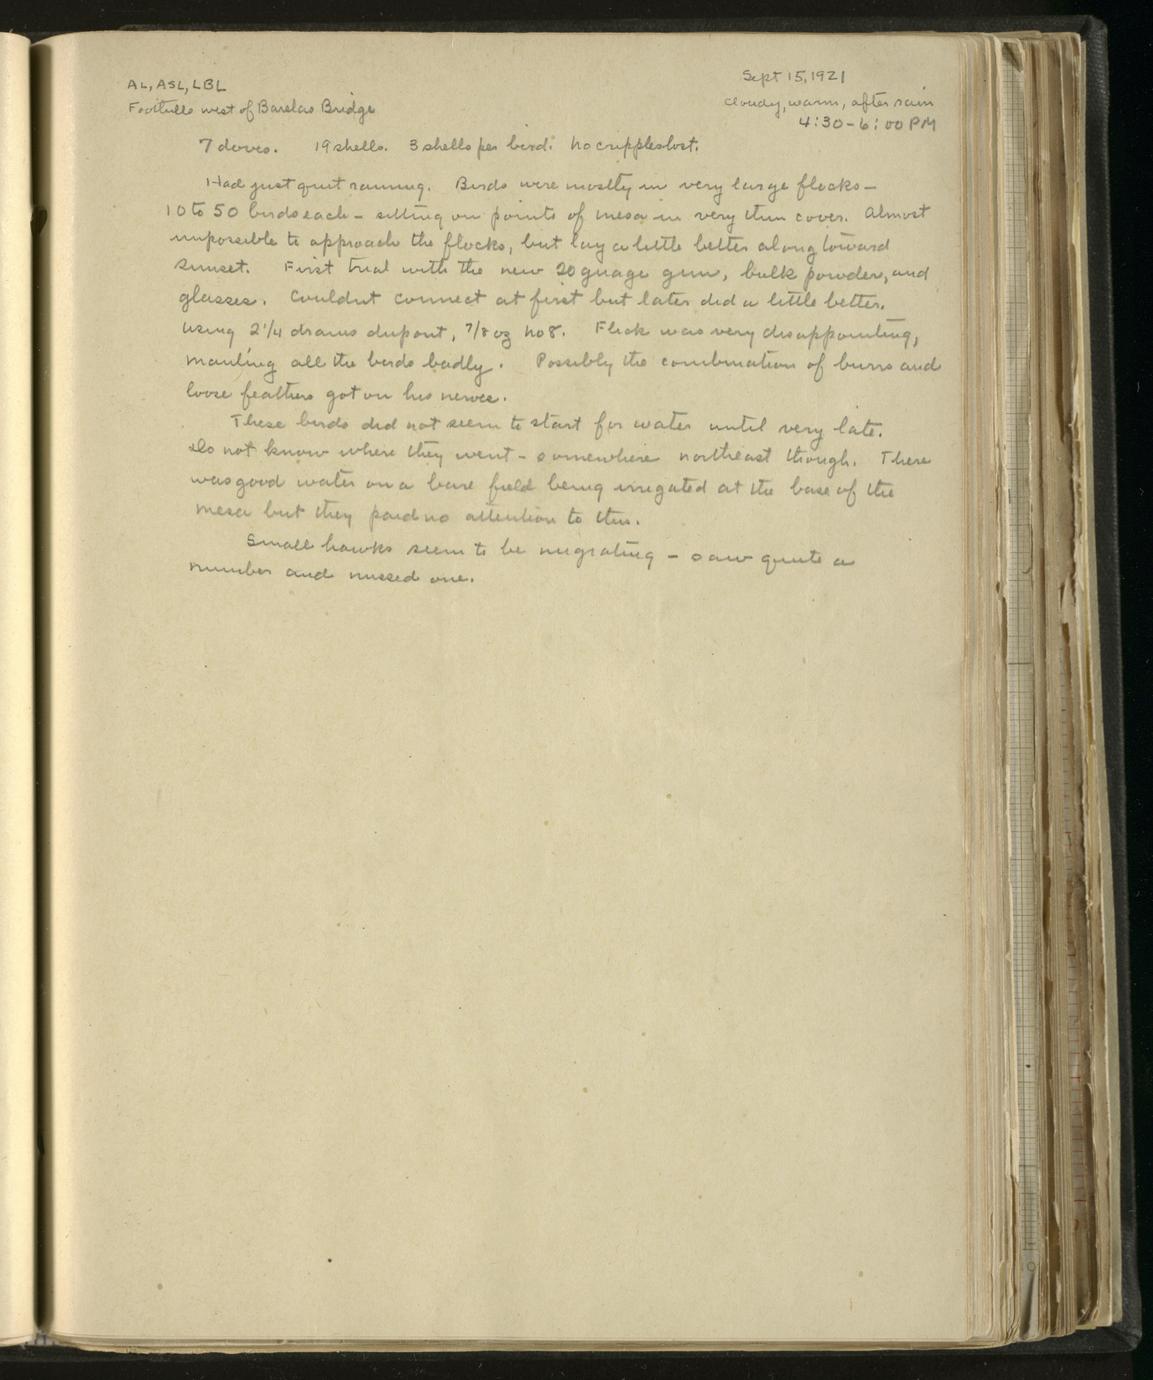 AL, ASL, LBL
Sept 15, 1921
Foothills west of Barelas Bridge
cloudy, warm, after rain
4:30-6:00 PM
7 doves. 19 shells. 3 shells per bird. No cripples lost.
Had just quit raining. Birds were mostly in very large flocks -
10 to 50 birds each - sitting on points of mesa in very thin cover. Almost
impossible to approach the flocks, but lay a little better along toward
sunset. First trial with the new 20 guage gun, bulk powder, and
glasses. Couldnt connect at first but later did a little better.
using 2 1/4 drams dupont, 7/8 oz no 8. Flick was very disappointing,
mauling all the birds badly. Possibly the combination of burrs and
loose feathers got on his nerves.
These birds did not seem to start for water until very late.
Do not know where they went - somewhere northeast though. There
was good water on a bare field being irrigated at the base of the
mesa but they paid no attention to this.
Small hawks seem to be migrating - saw quite a
number and missed one.